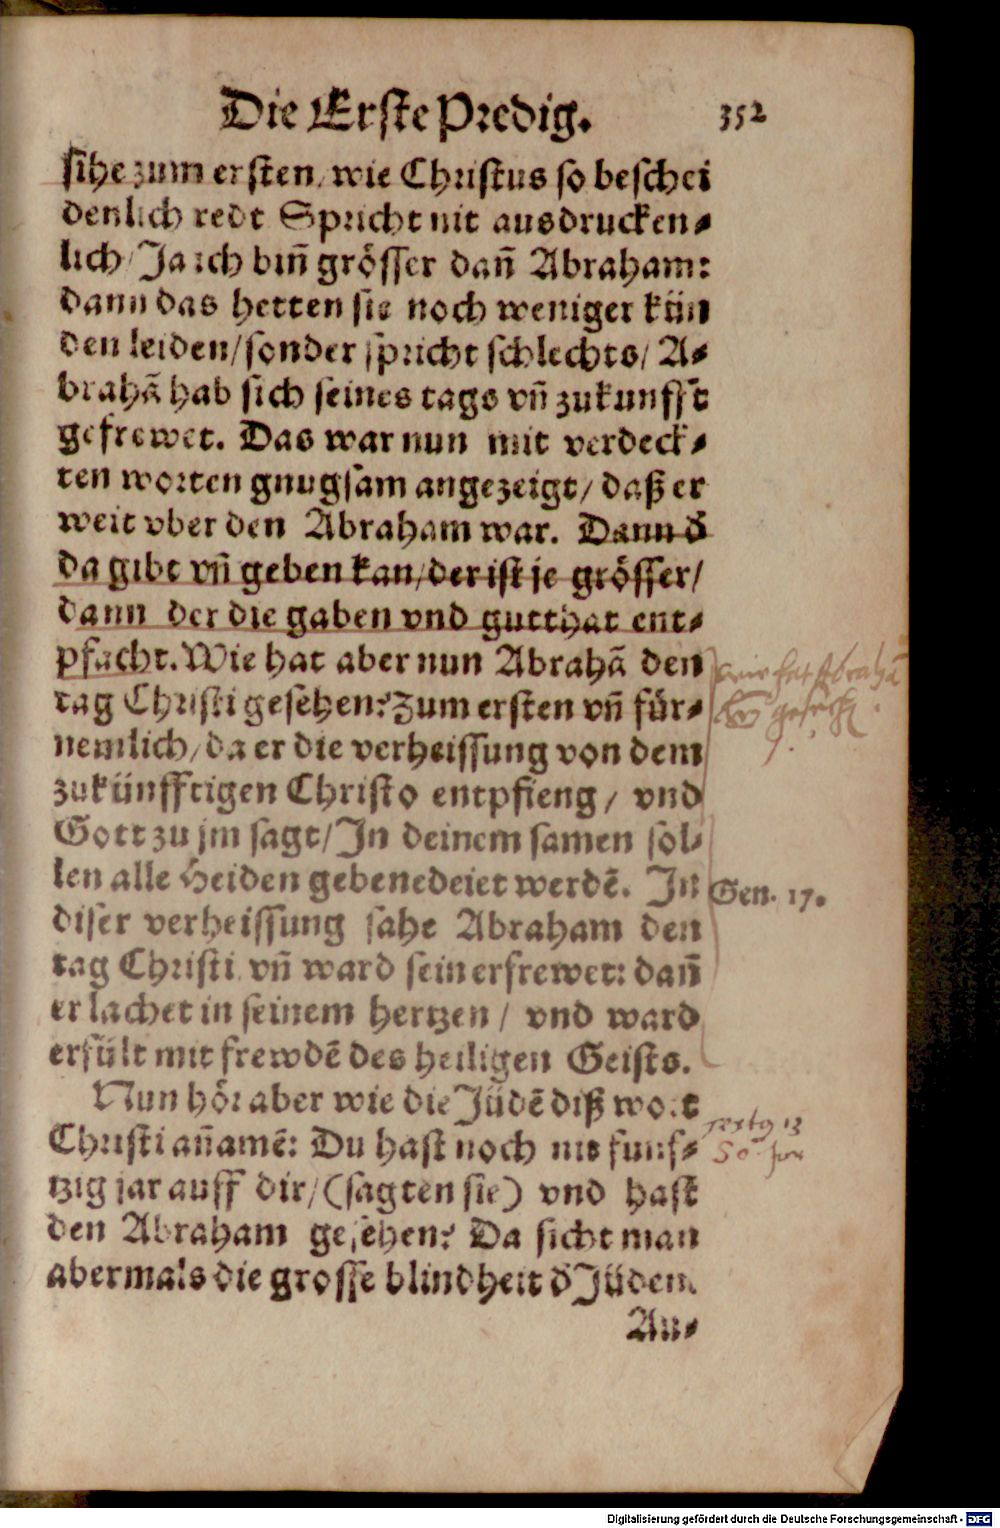 Die Erste Predig. 352
sihe zum ersten, wie Christus so beschei
denlich redt Spricht nit ausdrucken⸗
lich/ Ja ich biñ grösser dañ Abraham:
dann das hetten sie noch weniger kün
den leiden/ sonder spricht schlechts/ A⸗
brahã hab sich seines tags vñ zukunfft
gefrewet. Das war nun mit verdeck⸗
ten worten gnugsam angezeigt/ daß er
weit vber den Abraham war. Dann d̓
da gibt vñ geben kan/ der ist je grösser/
dann der die gaben vnd gutthat ent⸗
pfacht. Wie hat aber nun Abrahã den
tag Christi gesehen? Zum ersten vñ für⸗
nemlich/ da er die verheissung von dem
zukünfftigen Christo entpfieng/ vnd
Gott zu jm sagt/ In deinem samen sol⸗
len alle Heiden gebenedeiet werdẽ. In
Gen. 17.
diser verheissung sahe Abraham den
tag Christi vñ ward sein erfrewet: dañ
er lachet in seinem hertzen/ vnd ward
erfült mit frewdẽ des heiligen Geists.
Nun hör aber wie die Jüdẽ diß wort
Christi añamẽ: Du hast noch nit funf⸗
tzig jar auff dir/ (sagten sie) vnd hast
den Abraham gesehen? Da sicht man
abermals die grosse blindheit d̓ Jüden.
An⸗
wie hat Abrahã
50 jar
Digitalisierung gefördert durch die Deutsche Forschungsgemeinschaft - DFG